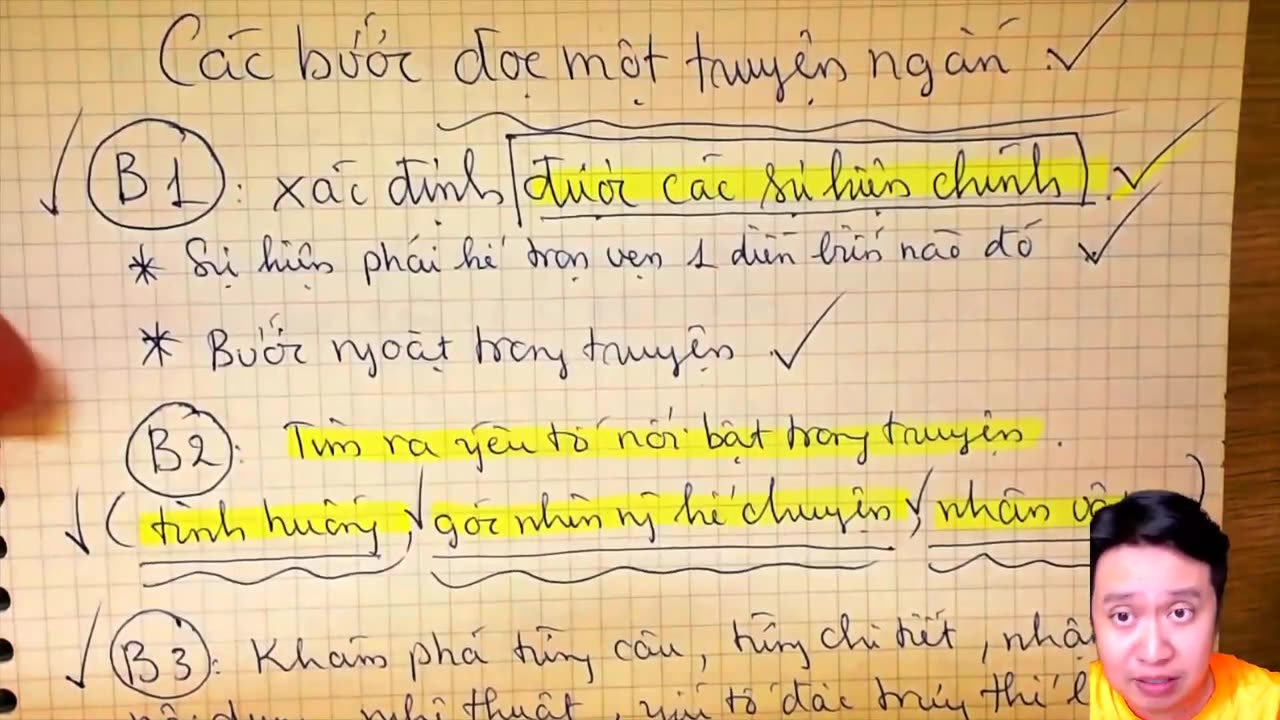 Các bước đọc một truyện ngắn.
B1: xác định được các sự kiện chính.
* Sự kiện phải kể trọn vẹn 1 diễn biến nào đó
* Bước ngoặt trong truyện
B2: Tìm ra yếu tố nổi bật trong truyện.
(tình huống, góc nhìn ng kể chuyện, nhân
B3: Khám phá từng câu, từng chi tiết,
nghệ thuật, yếu tố đặc trưng thể